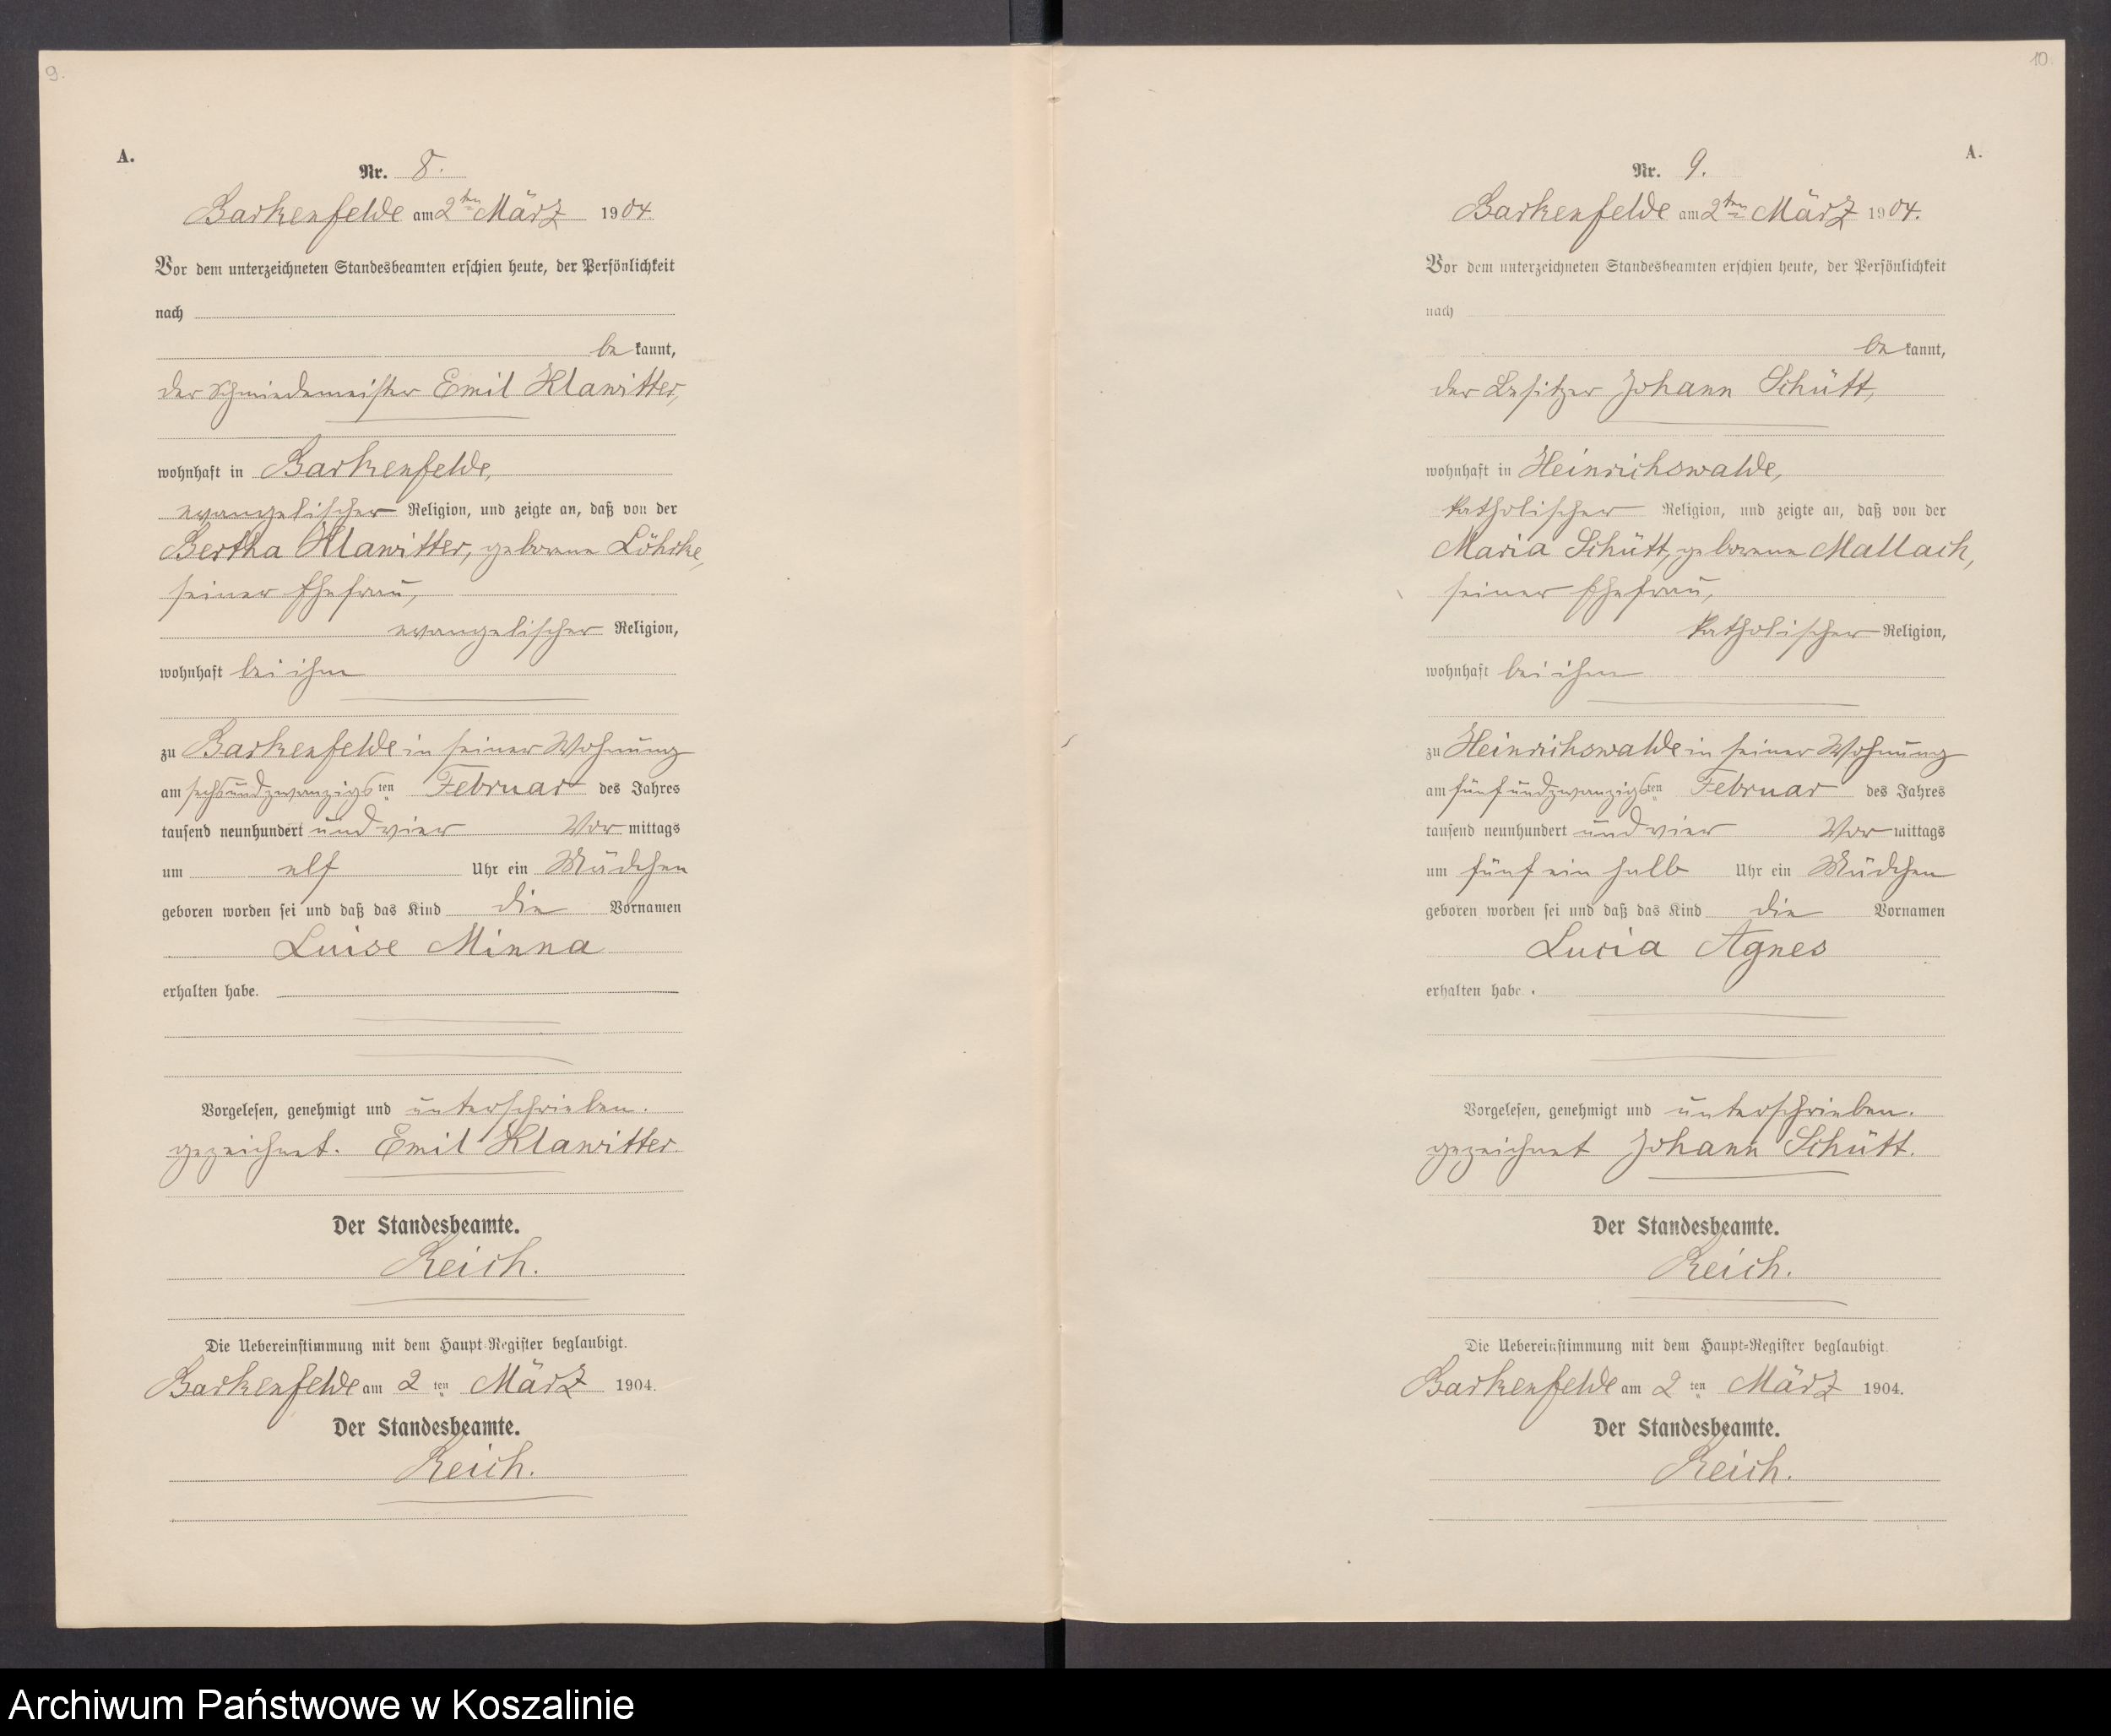 9.
A.
Nr. 8.
Barkenfelde am 2ten März 1904.
Vor dem unterzeichneten Standesbeamten erschien heute, der Persönlichkeit
nach
bekannt,
der Schmiedemeister Emil Klawitter,
wohnhaft in Barkenfelde,
evangelischer Religion, und zeigte an, daß von der
Bertha Klawitter, geborene Löhrke,
seiner Ehefrau,
evangelischer Religion,
wohnhaft bei ihm
zu Barkenfelde in seiner Wohnung
am sechsundzwanzigsten Februar des Jahres
tausend neunhundert und vier Vormittags
um elf Uhr ein Mädchen
geboren worden sei und daß das Kind die Vornamen
Luise Minna
erhalten habe.
Vorgelesen, genehmigt und unterschrieben.
gezeichnet. Emil Klawitter
Der Standesbeamte.
Reich.
Die Uebereinstimmung mit dem Haupt-Register beglaubigt.
Barkenfelde am 2ten März 1904.
Der Standesbeamte.
Reich.
10.
A.
Nr. 9.
Barkenfelde am 2ten März 1904.
Vor dem unterzeichneten Standesbeamten erschien heute, der Persönlichkeit
nach
bekannt,
der Besitzer Johann Schütt,
wohnhaft in Heinrichswalde,
katholischer Religion, und zeigte an, daß von der
Maria Schütt, geborene Mallach,
seiner Ehefrau,
katholischer Religion,
wohnhaft bei ihm
zu Heinrichswalde in seiner Wohnung
am fünfundzwanzigsten Februar des Jahres
tausend neunhundert und vier Vormittags
um fünf ein halb Uhr ein Mädchen
geboren worden sei und daß das Kind die Vornamen
Lucia Agnes
erhalten habe.
Vorgelesen, genehmigt und unterschrieben.
gezeichnet Johann Schütt.
Der Standesbeamte.
Reich.
Die Uebereinstimmung mit dem Haupt-Register beglaubigt.
Barkenfelde am 2ten März 1904.
Der Standesbeamte.
Reich.
Archiwum Państwowe w Koszalinie